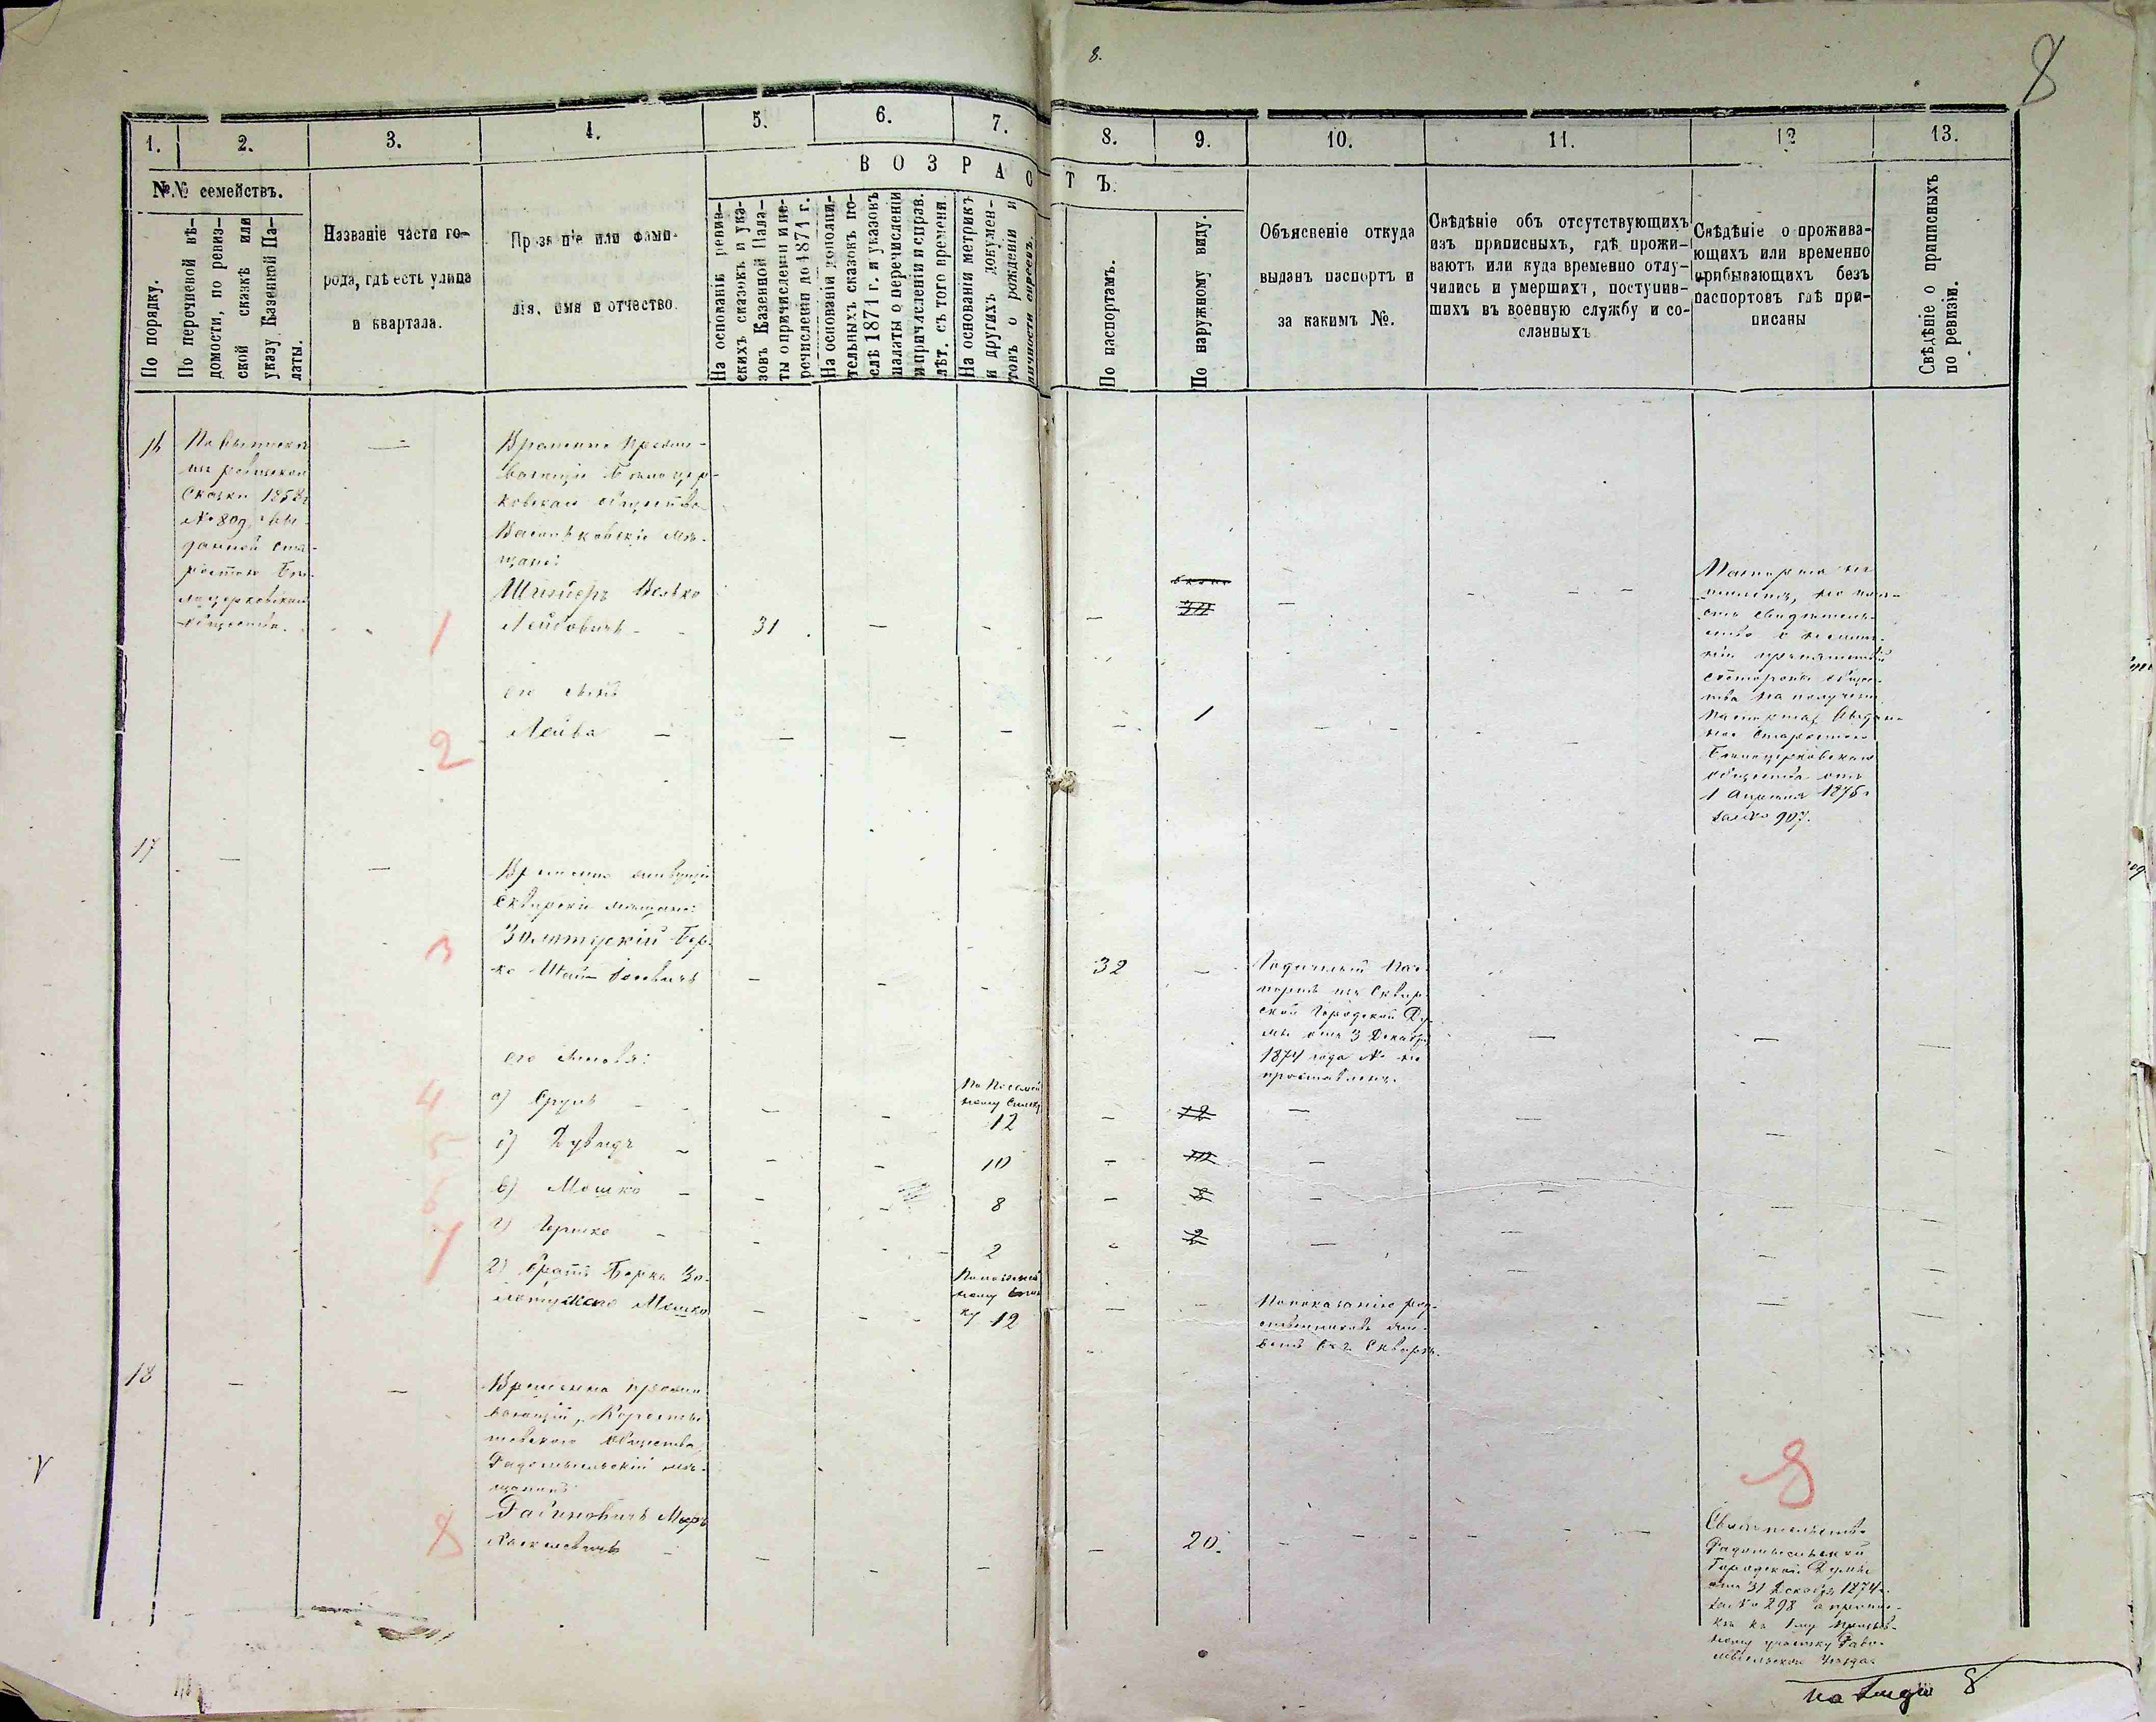 8.
8
1. 2. 3. 4. 5. 6. 7. 8. 9. 10. 11. 12 13.
В О З Р А С Т Ъ.
№№ семействъ.
По порядку.
По перечневой вѣ-
домости, по ревиз-
ской сказкѣ или
указу Казенной Па-
латы.
Названіе части го-
рода, гдѣ есть улица
и квартала.
Прозваніе или фами-
лія, имя и отчество.
На основаніи ревиз-
скихъ сказокъ и ука-
зовъ Казенной Пала-
ты о причисленіи и пе-
речисленіи до 1871 г.
На основаніи дополни-
тельныхъ сказокъ по-
слѣ 1871 г. и указовъ
палаты о перечисленіи
и причисленіи и справ.
лѣт. съ того времени.
На основаніи метрикъ
и другихъ докумен-
товъ о рожденіи и
личности евреевъ.
По паспортамъ.
По наружному виду.
Объясненіе откуда
выданъ паспортъ и
за какимъ №.
Свѣдѣніе объ отсутствующихъ
изъ приписныхъ, гдѣ прожи-
ваютъ или куда временно отлу-
чились и умершихъ, поступив-
шихъ въ военную службу и со-
сланныхъ
Свѣдѣніе о прожива-
ющихъ или временно
прибывающихъ безъ
паспортовъ гдѣ при-
писаны
Свѣдѣніе о приписныхъ
по ревизіи.
16
По выписки
изъ ревизской
сказки 1858 г
№ 809, вы-
данной ста-
ростою Бѣ-
лоцерковскаго
общества.
Временно прожи-
вающіе Бѣлоцер-
ковскаго общества
Васильковскіе мѣ-
щане:
Шпиеръ Волько
1 Лейбовичъ - 31
30
его сынъ
2 Лейба 1
Паспорта не
имѣетъ, но
свидѣтель-
ство о неимѣ-
ніи препятствій
со стороны общес-
тва на полученіе
паспорта, выдан-
ное старостою
Бѣлоцерковскаго
общества отъ
1 Апрѣля 1875 г
за № 907.
17
Временно живущіе
Сквирскіе мѣщане:
3 Золотуцкій Бер-
ко Шаи-Іосевичъ 32
Годичный пас-
портъ изъ Сквир-
ской Городской Ду-
мы отъ 3 Декабря
1874 года № не
проставленъ.
его сыновья:
По посемей-
ному списку
4 а) Сруль 12 12
5 б) Дувидъ 10 10
6 в) Мошко 8 8
7 г) Гершко 2 2
2) братъ Берка Зо-
лотуцкаго Мошко
По посемей-
ному спис-
ку 12
По показанію род-
ственниковъ жи-
ветъ въ г. Сквирѣ.
18
Временно прожи-
вающій, Коросты-
шевскаго общества
Радомысльскій мѣ-
щанинъ
Рабиновичъ Меръ
8 Хаскелевичъ 20.
8
Свидѣтельство
Радомысльской
Городской Думы
отъ 31 Декабря 1874 г.
за № 298 о припис-
кѣ къ 1му призыв-
ному участку Радо-
мысльскаго уѣзда.
на лицо 8